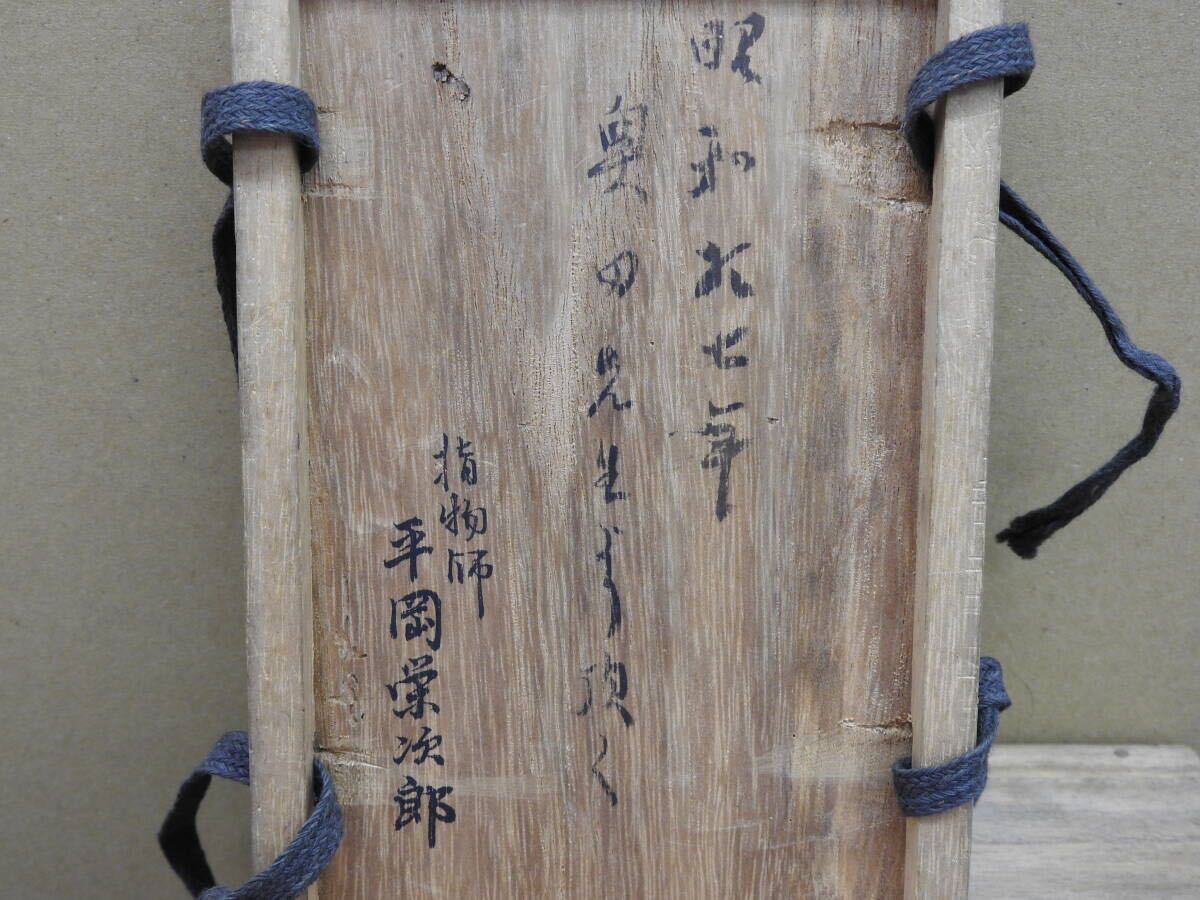 昭和七年
奥田先生より頂く
指物師
平岡栄次郎